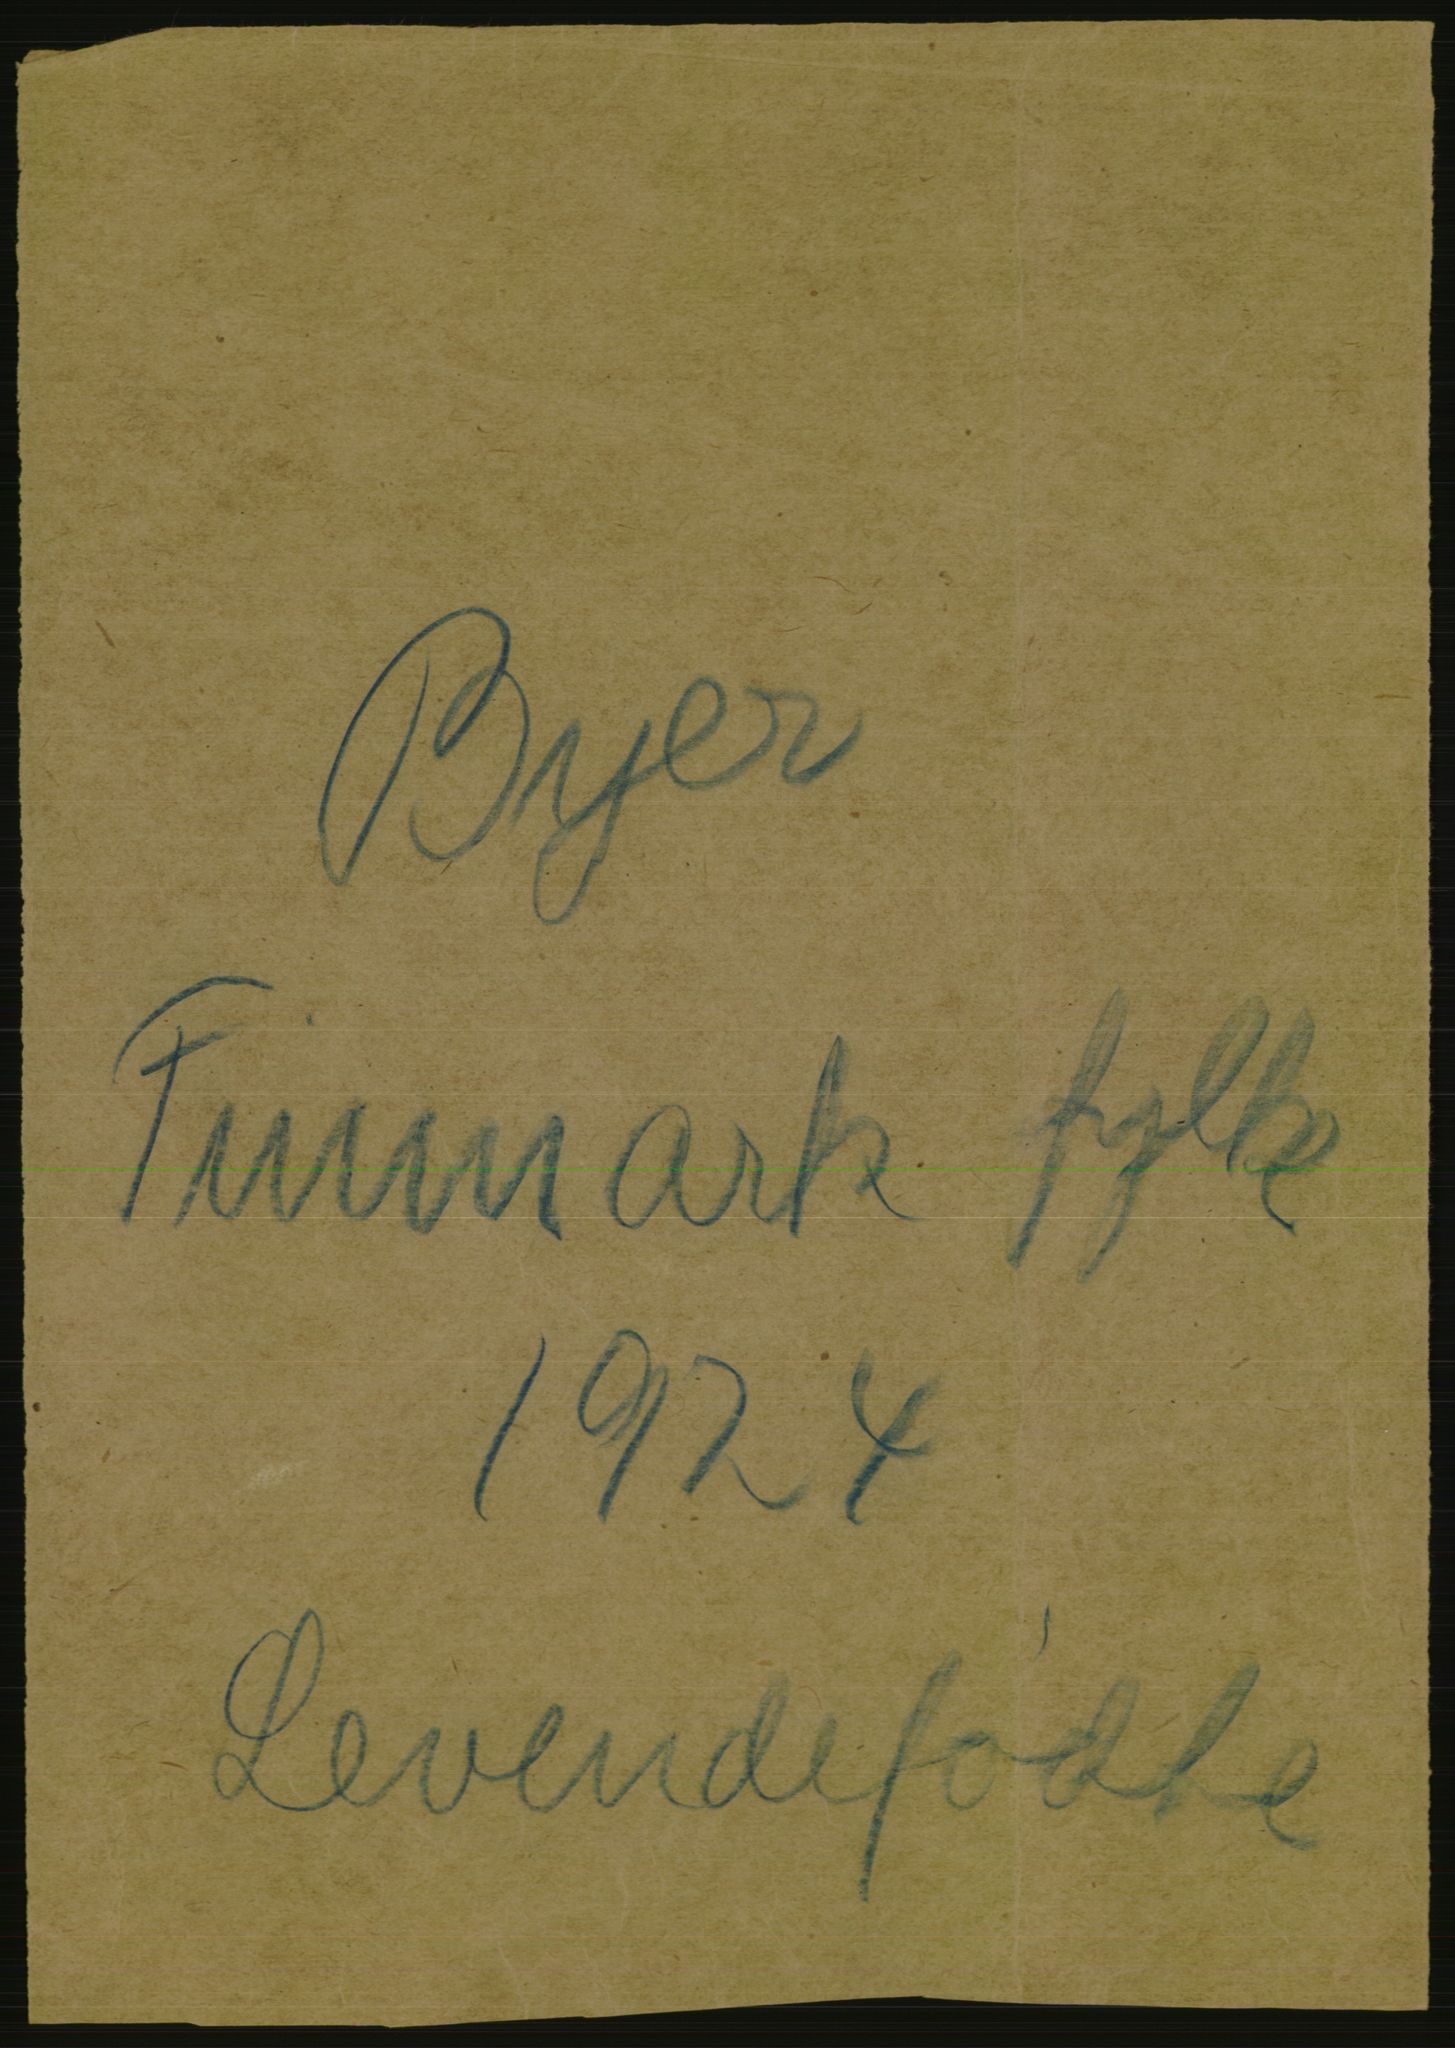 Byer
Finmark fylke
1924
Levendefødte